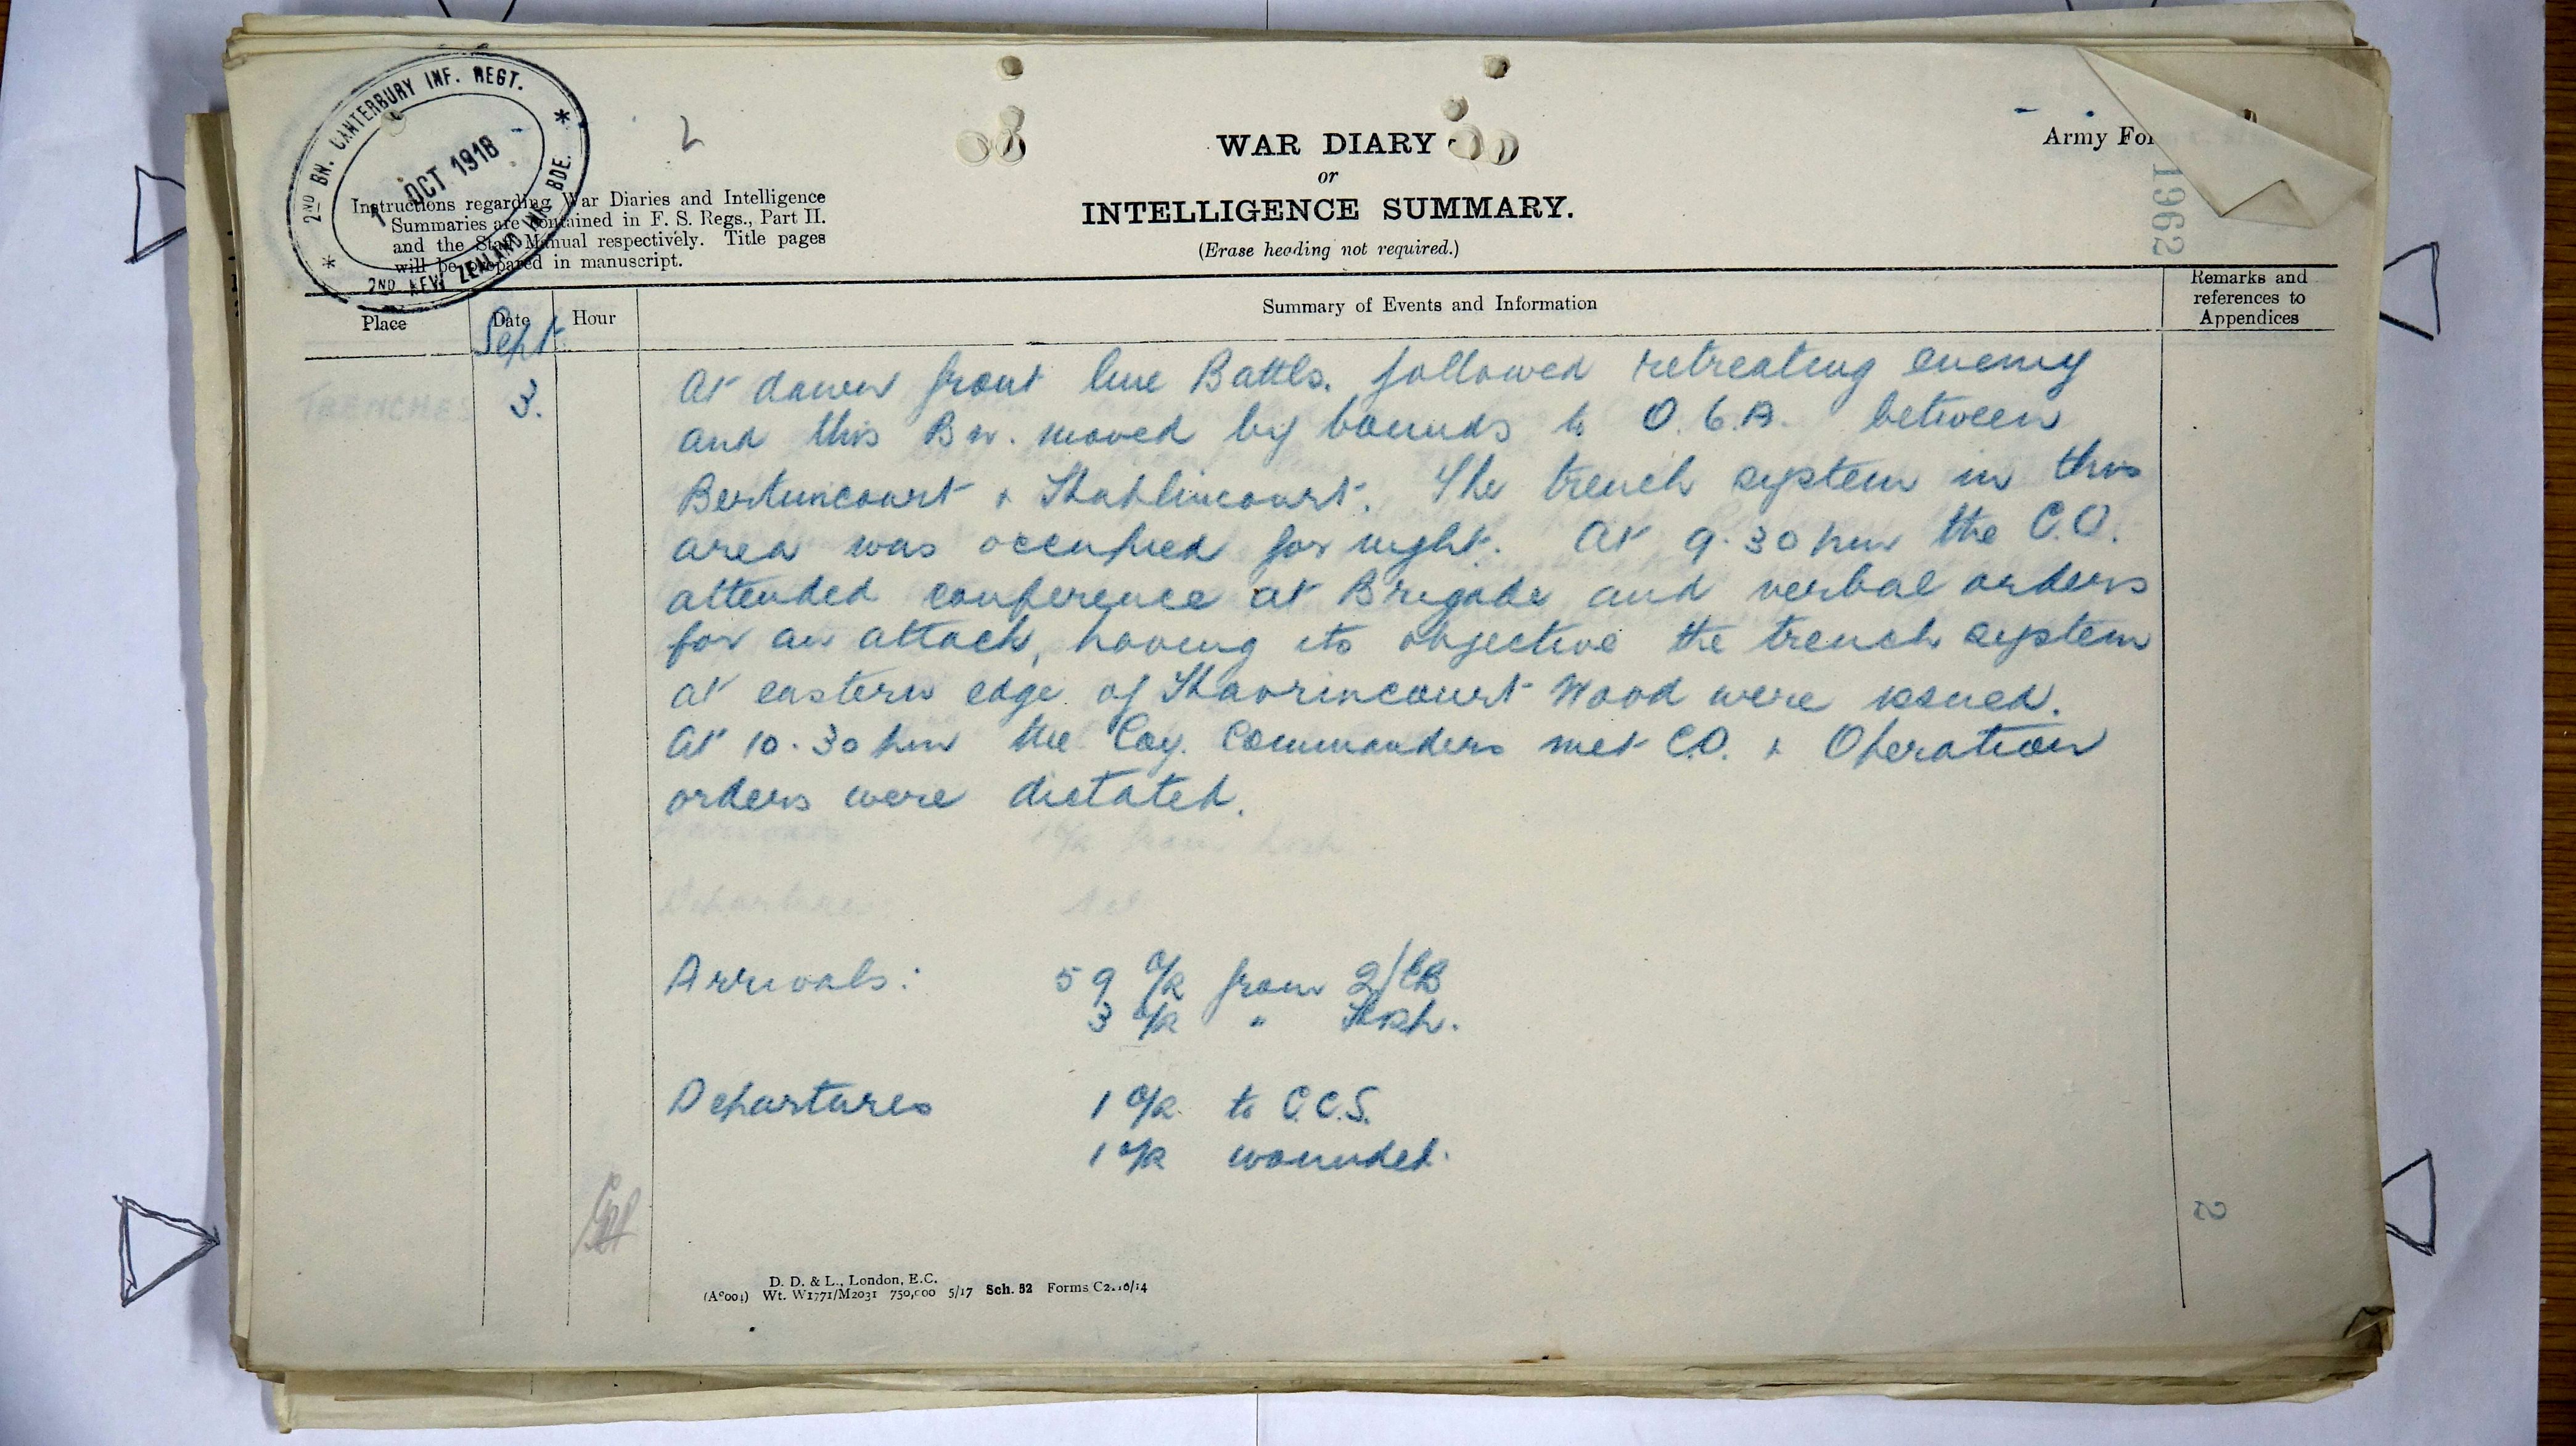 2ND BN. CANTERBURY INF. REGT.
OCT 1918
2ND NEW ZEALAND INF. BDE.
2
WAR DIARY
or
INTELLIGENCE SUMMARY.
(Erase heading not required.)
Army For
1962
Instructions regarding War Diaries and Intelligence
Summaries are contained in F. S. Regs., Part II.
and the Staff Manual respectively. Title pages
will be prepared in manuscript.
Place
Date
Hour
Summary of Events and Information
Remarks and
references to
Appendices
Sept.
TRENCHES
3.
At dawn front line Battls. followed retreating enemy
and this Bn. moved by bounds to O.6.B. between
Bertincourt + Haplincourt. The trench system in this
area was occupied for night. At 9.30 pm the C.O.
attended conference at Brigade and verbal orders
for an attack, having its objective the trench system
at eastern edge of Havrincourt Wood were issued.
At 10.30 pm the Coy. Commanders met C.O. + Operation
orders were dictated.
Departures Nil
Arrivals: 59 O/R from 2/CB
3 O/R " Hosp.
Departures 1 O/R to C.C.S.
1 O/R wounded.
2
D. D. & L., London, E.C.
Wt. W1771/M2031 750,000 5/17 Sch. 52 Forms C2118/14